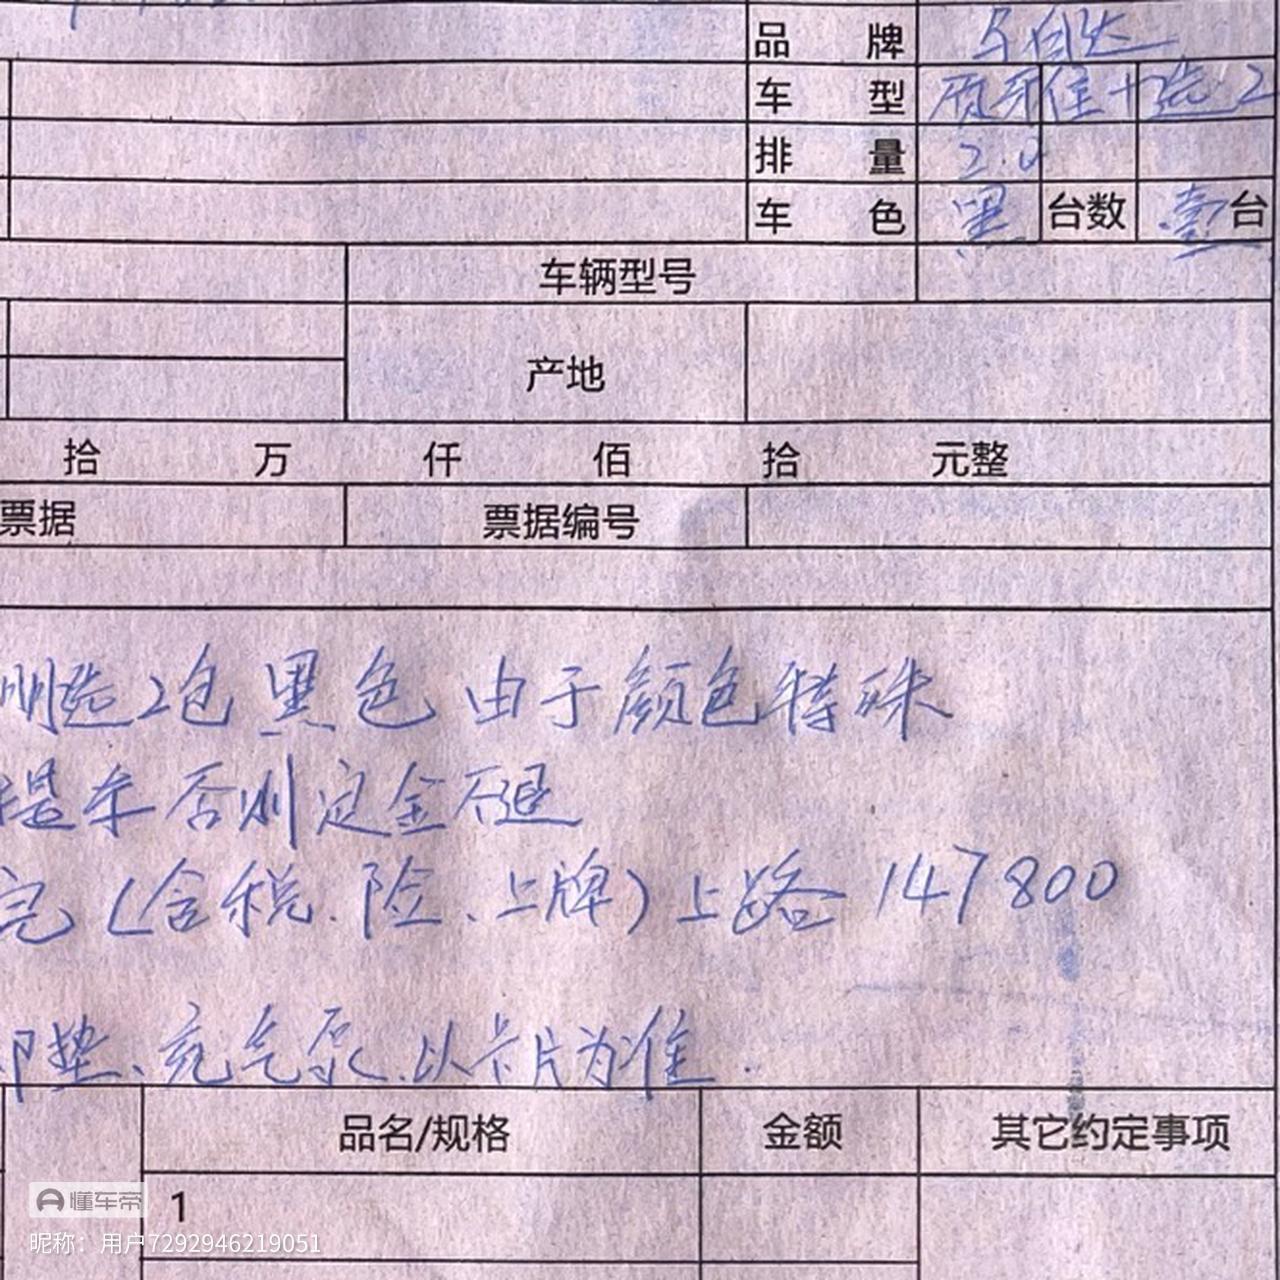 品 牌 马自达
车 型 质雅佳+选2
排 量 2.0
车 色 黑 台数 壹台
车辆型号
产地
拾 万 仟 佰 拾 元整
票据 票据编号
选2包 黑色 由于颜色特殊
提车 否则定金不退
完(含税.险.上牌)上路 147800
垫、充气泵.以卡片为准.
品名/规格 金额 其它约定事项
1
懂车帝
昵称：用户7292946219051